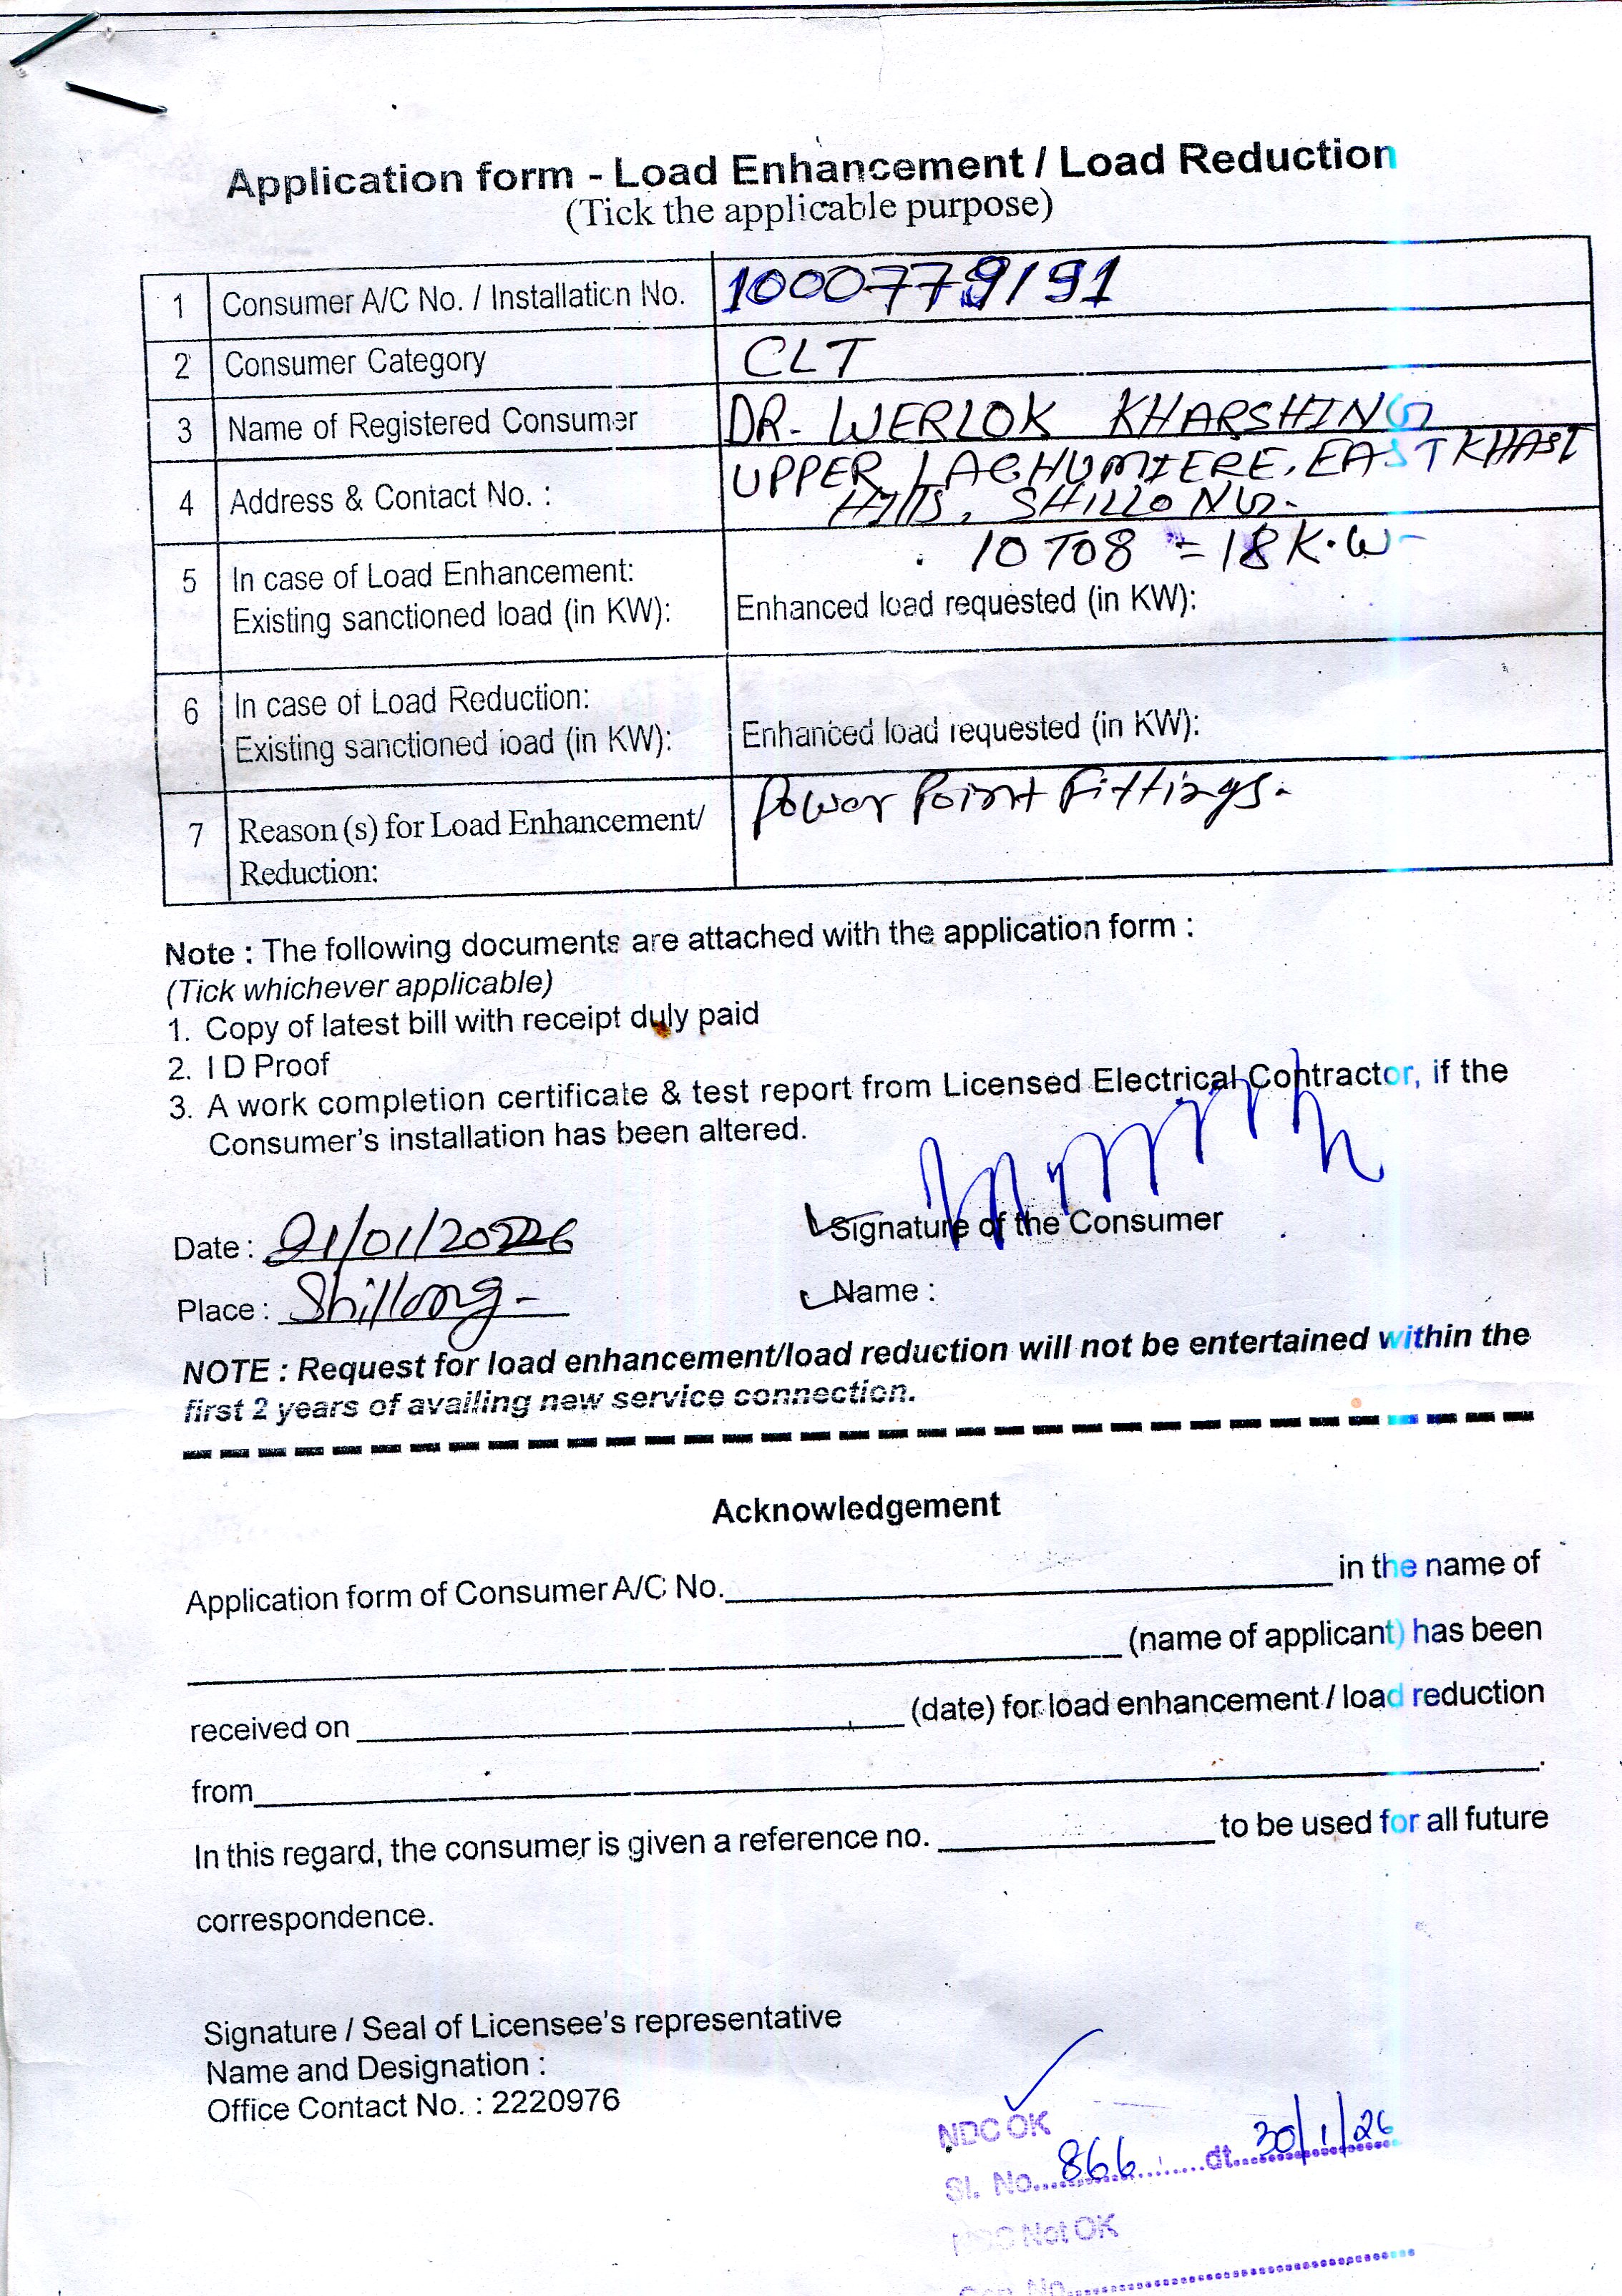 Application form - Load Enhancement / Load Reduction
(Tick the applicable purpose)
1 Consumer A/C No. / Installation No. 1000779191
2 Consumer Category CLT
3 Name of Registered Consumer DR. WERLOK KHARSHING
4 Address & Contact No. : UPPER LAGHUMIERE, EAST KHASI
Hills, SHILLONG.
10 TO 8 = 18 K.W
5 In case of Load Enhancement:
Existing sanctioned load (in KW): Enhanced load requested (in KW):
6 In case of Load Reduction:
Existing sanctioned load (in KW): Enhanced load requested (in KW):
7 Reason (s) for Load Enhancement/ Power Point Fittings.
Reduction:
Note : The following documents are attached with the application form :
(Tick whichever applicable)
1. Copy of latest bill with receipt duly paid
2. I D Proof
3. A work completion certificate & test report from Licensed Electrical Contractor, if the
Consumer's installation has been altered.
Date : 21/01/2026 Signature of the Consumer
Place : Shillong Name :
NOTE : Request for load enhancement/load reduction will not be entertained within the
first 2 years of availing new service connection.
Acknowledgement
Application form of Consumer A/C No. in the name of
(name of applicant) has been
received on (date) for load enhancement / load reduction
from
In this regard, the consumer is given a reference no. to be used for all future
correspondence.
Signature / Seal of Licensee's representative
Name and Designation :
Office Contact No. : 2220976
NDC OK
Sl. No. 866 dt. 30/1/26
NDC Not OK